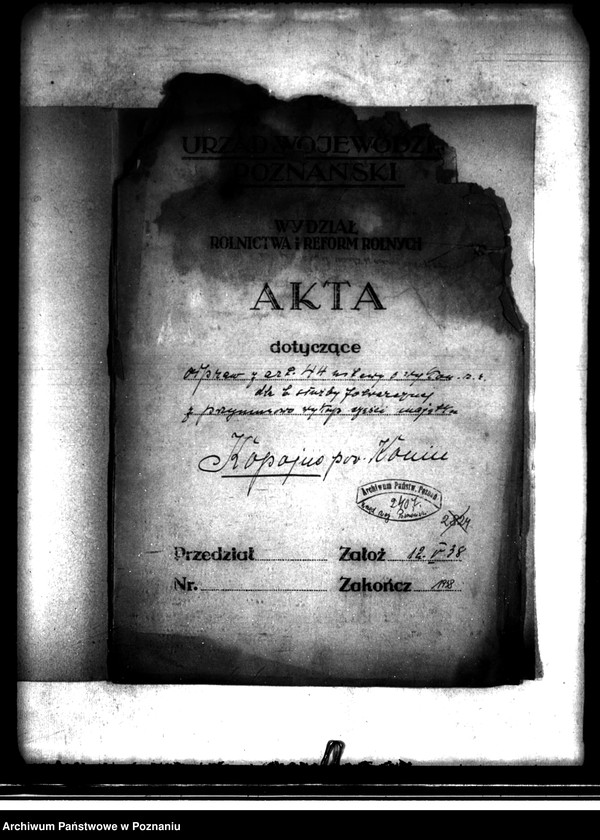 URZĄD WOJEWÓDZKI
POZNAŃSKI
WYDZIAŁ
ROLNICTWA i REFORM ROLNYCH
AKTA
dotyczące
odpraw z art. 44 ustawy o wykon. r. r.
dla b. służby folwarcznej
z przymusowo wykup. części majątku
Kopojno pow. Konin
Archiwum Państw. Poznań
2407
2824
Przedział Założ 12. V 38
Nr. Zakończ 1938
Archiwum Państwowe w Poznaniu